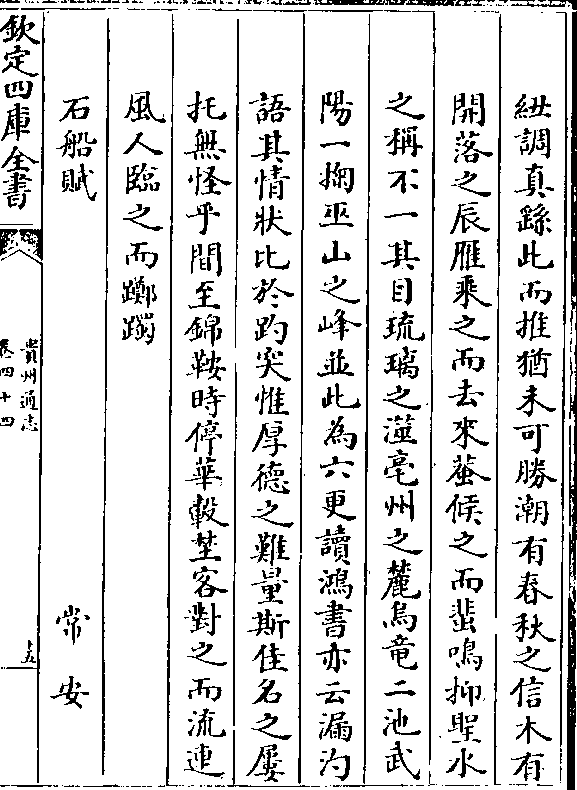 紐調真繇此而推猶未可勝潮有春秋之信木有
開落之辰雁乘之而去來蛬候之而蜚鳴抑聖水
之稱不一其目琉璃之溢亳州之麓烏竜二池武
陽一掬巫山之峰並此為六更讀鴻書亦云漏汋
語其情狀比於趵突惟厚德之難量斯佳名之屢
托無怪乎間至錦鞍時停華轂埜客對之而流連
風人臨之而躑躅
石船賦 常安
欽定四庫全書
貴州通志
卷四十四
十五